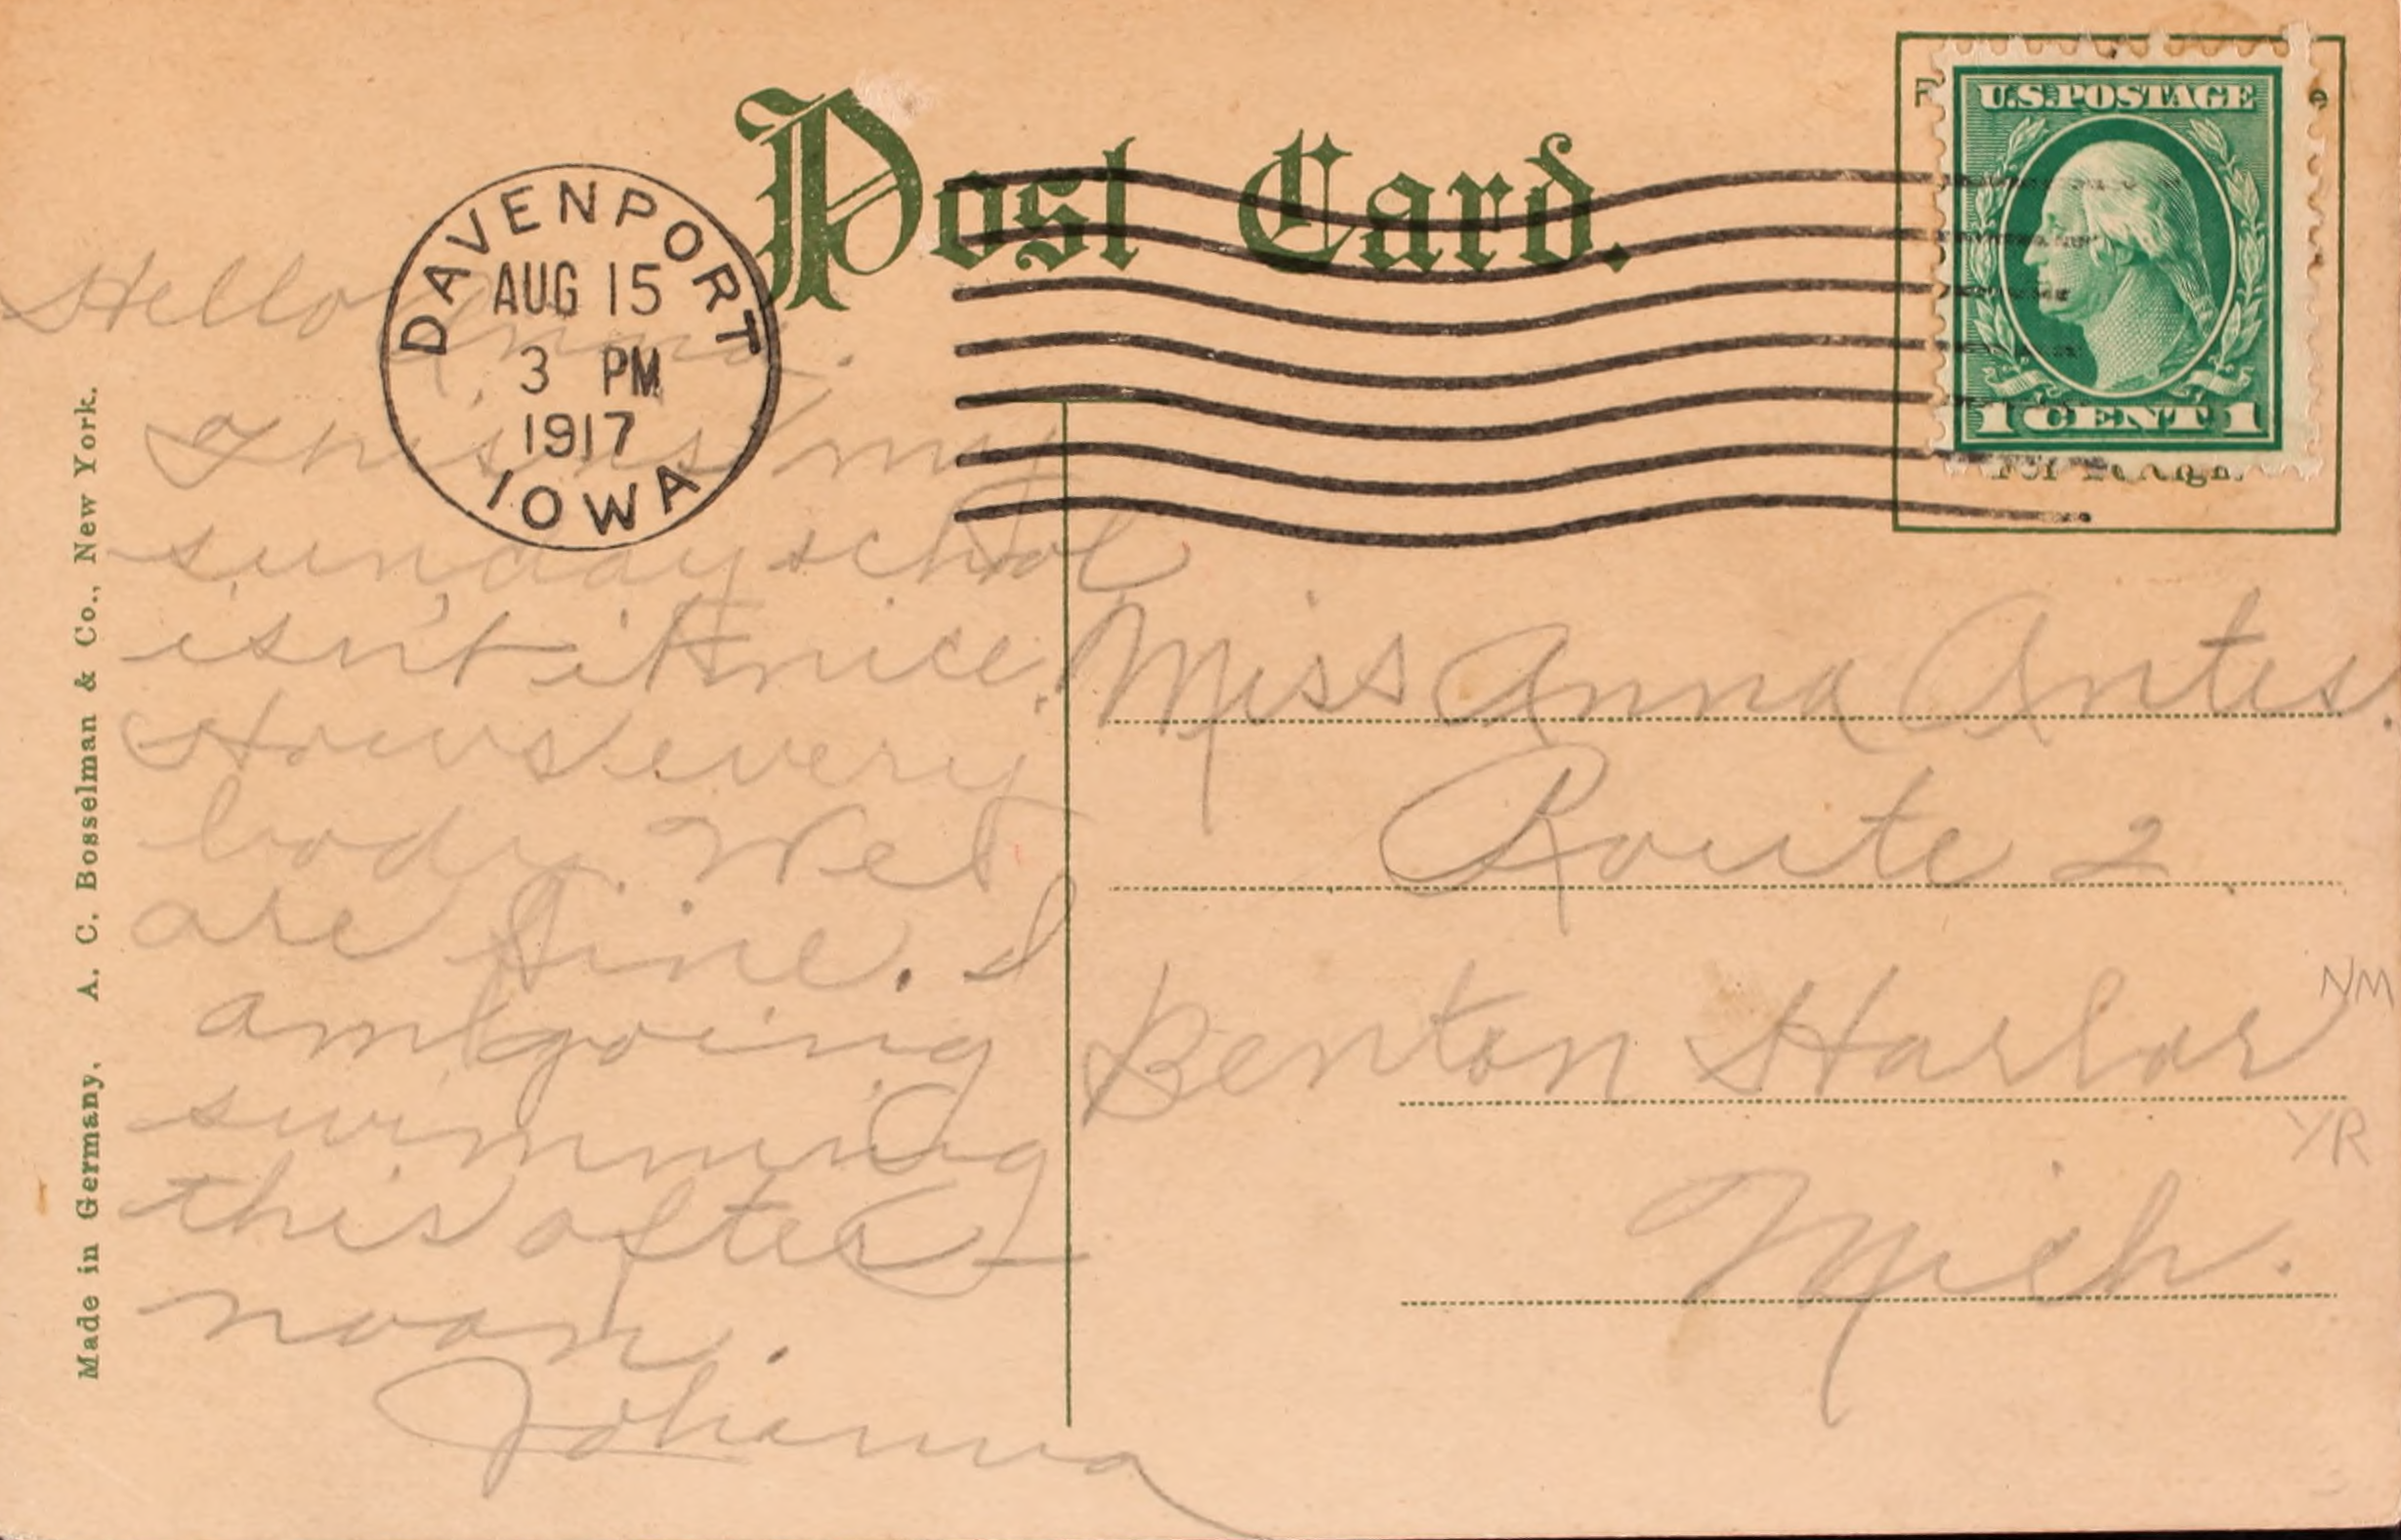 Post Card.
DAVENPORT
AUG 15
3 PM
1917
IOWA
U.S. POSTAGE
1 CENT 1
Made in Germany, A. C. Bosselman & Co., New York.
Hello Anna.
This is my
sunday school
isn't it nice.
Hows every
body. We
are fine. I
am going
swimming
this after-
noon.
Johanna
Miss Anna Antes.
Route 2
Benton Harbor
Mich.
NM
YR